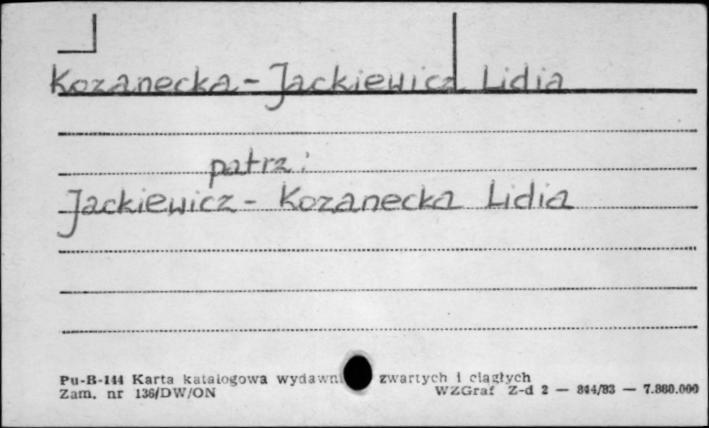 Kozanecka - Jackiewicz Lidia
patrz:
Jackiewicz - Kozanecka Lidia
Pu-B-144 Karta katalogowa wydawni zwartych i ciągłych
Zam. nr 136/DW/ON WZGraf Z-d 2 — 844/83 — 7.860.000